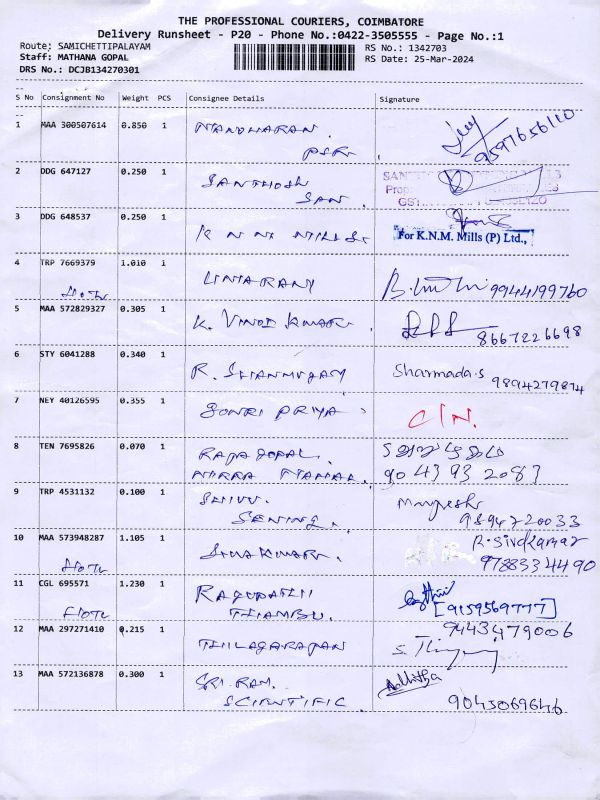 THE PROFESSIONAL COURIERS, COIMBATORE
Delivery Runsheet - P20 - Phone No.:0422-3505555 - Page No.:1
Route; SAMICHETTIPALAYAM RS No.: 1342703
Staff: MATHANA GOPAL RS Date: 25-Mar-2024
DRS No.: DCJB134270301
S No Consignment No Weight PCS Consignee Details Signature
1 MAA 300507614 0.850 1 MANOHARAN. 9597656110
PSR.
2 DDG 647127 0.250 1 SANTHOSH
SAN
3 DDG 648537 0.250 1 K N M MILLS
For K.N.M. Mills (P) Ltd.,
4 TRP 7669379 1.010 1 UMARANI 9944199760
5 MAA 572829327 0.305 1 K. VINOD KUMAR. 8667226698
6 STY 6041288 0.340 1 R. SHANMUGAM Sharmada.S
9894279874
7 NEY 40126595 0.355 1 GOWRI PRIYA C/N.
8 TEN 7695826 0.070 1 RAJAGOPAL.
9043932087
9 TRP 4531132 0.100 1 Mugesh
9894720033
10 MAA 573948287 1.105 1 SIVAKUMAR. R. Sivakumar
9788334490
11 CGL 695571 1.230 1 RAGUPATHI
THAMBU. [9159569777]
12 MAA 297271410 0.215 1 THILAGARAJAN 9443479006
13 MAA 572136878 0.300 1 SRI RAM.
SCIENTIFIC. 9043069646